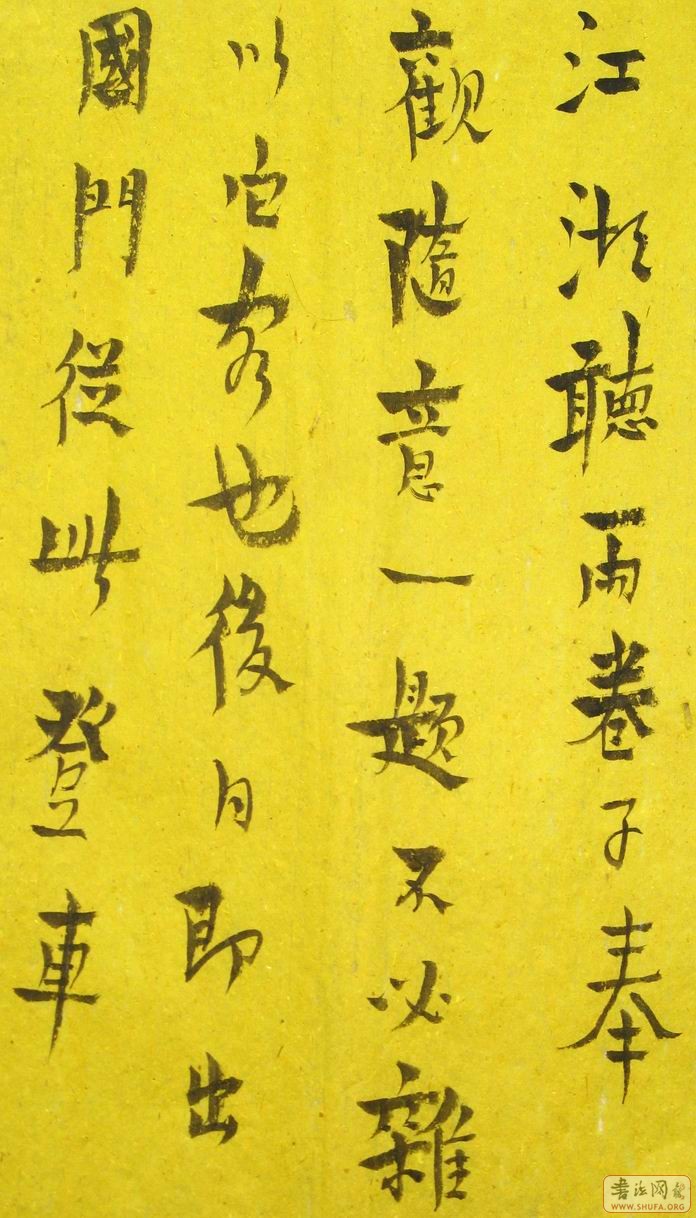 江湖聽雨卷子奉
觀隨意一題不必雜
以它客也後日即出
國門從此登車
書法网
WWW.SHUFA.ORG